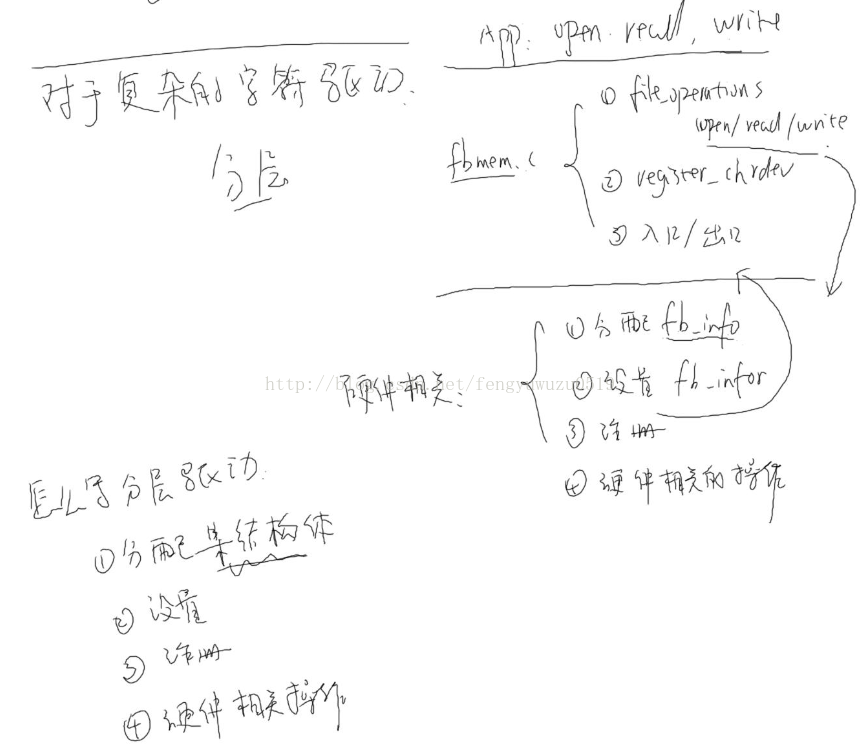 对于复杂的字符驱动.
分层
App: open. read, write
fbmem.c
① file_operations
open/read/write
② register_chrdev
③ 入口/出口
硬件相关:
① 分配 fb_info
② 设置 fb_infor
③ 注册
④ 硬件相关的操作
怎么写分层驱动.
① 分配某结构体
② 设置
③ 注册
④ 硬件相关操作